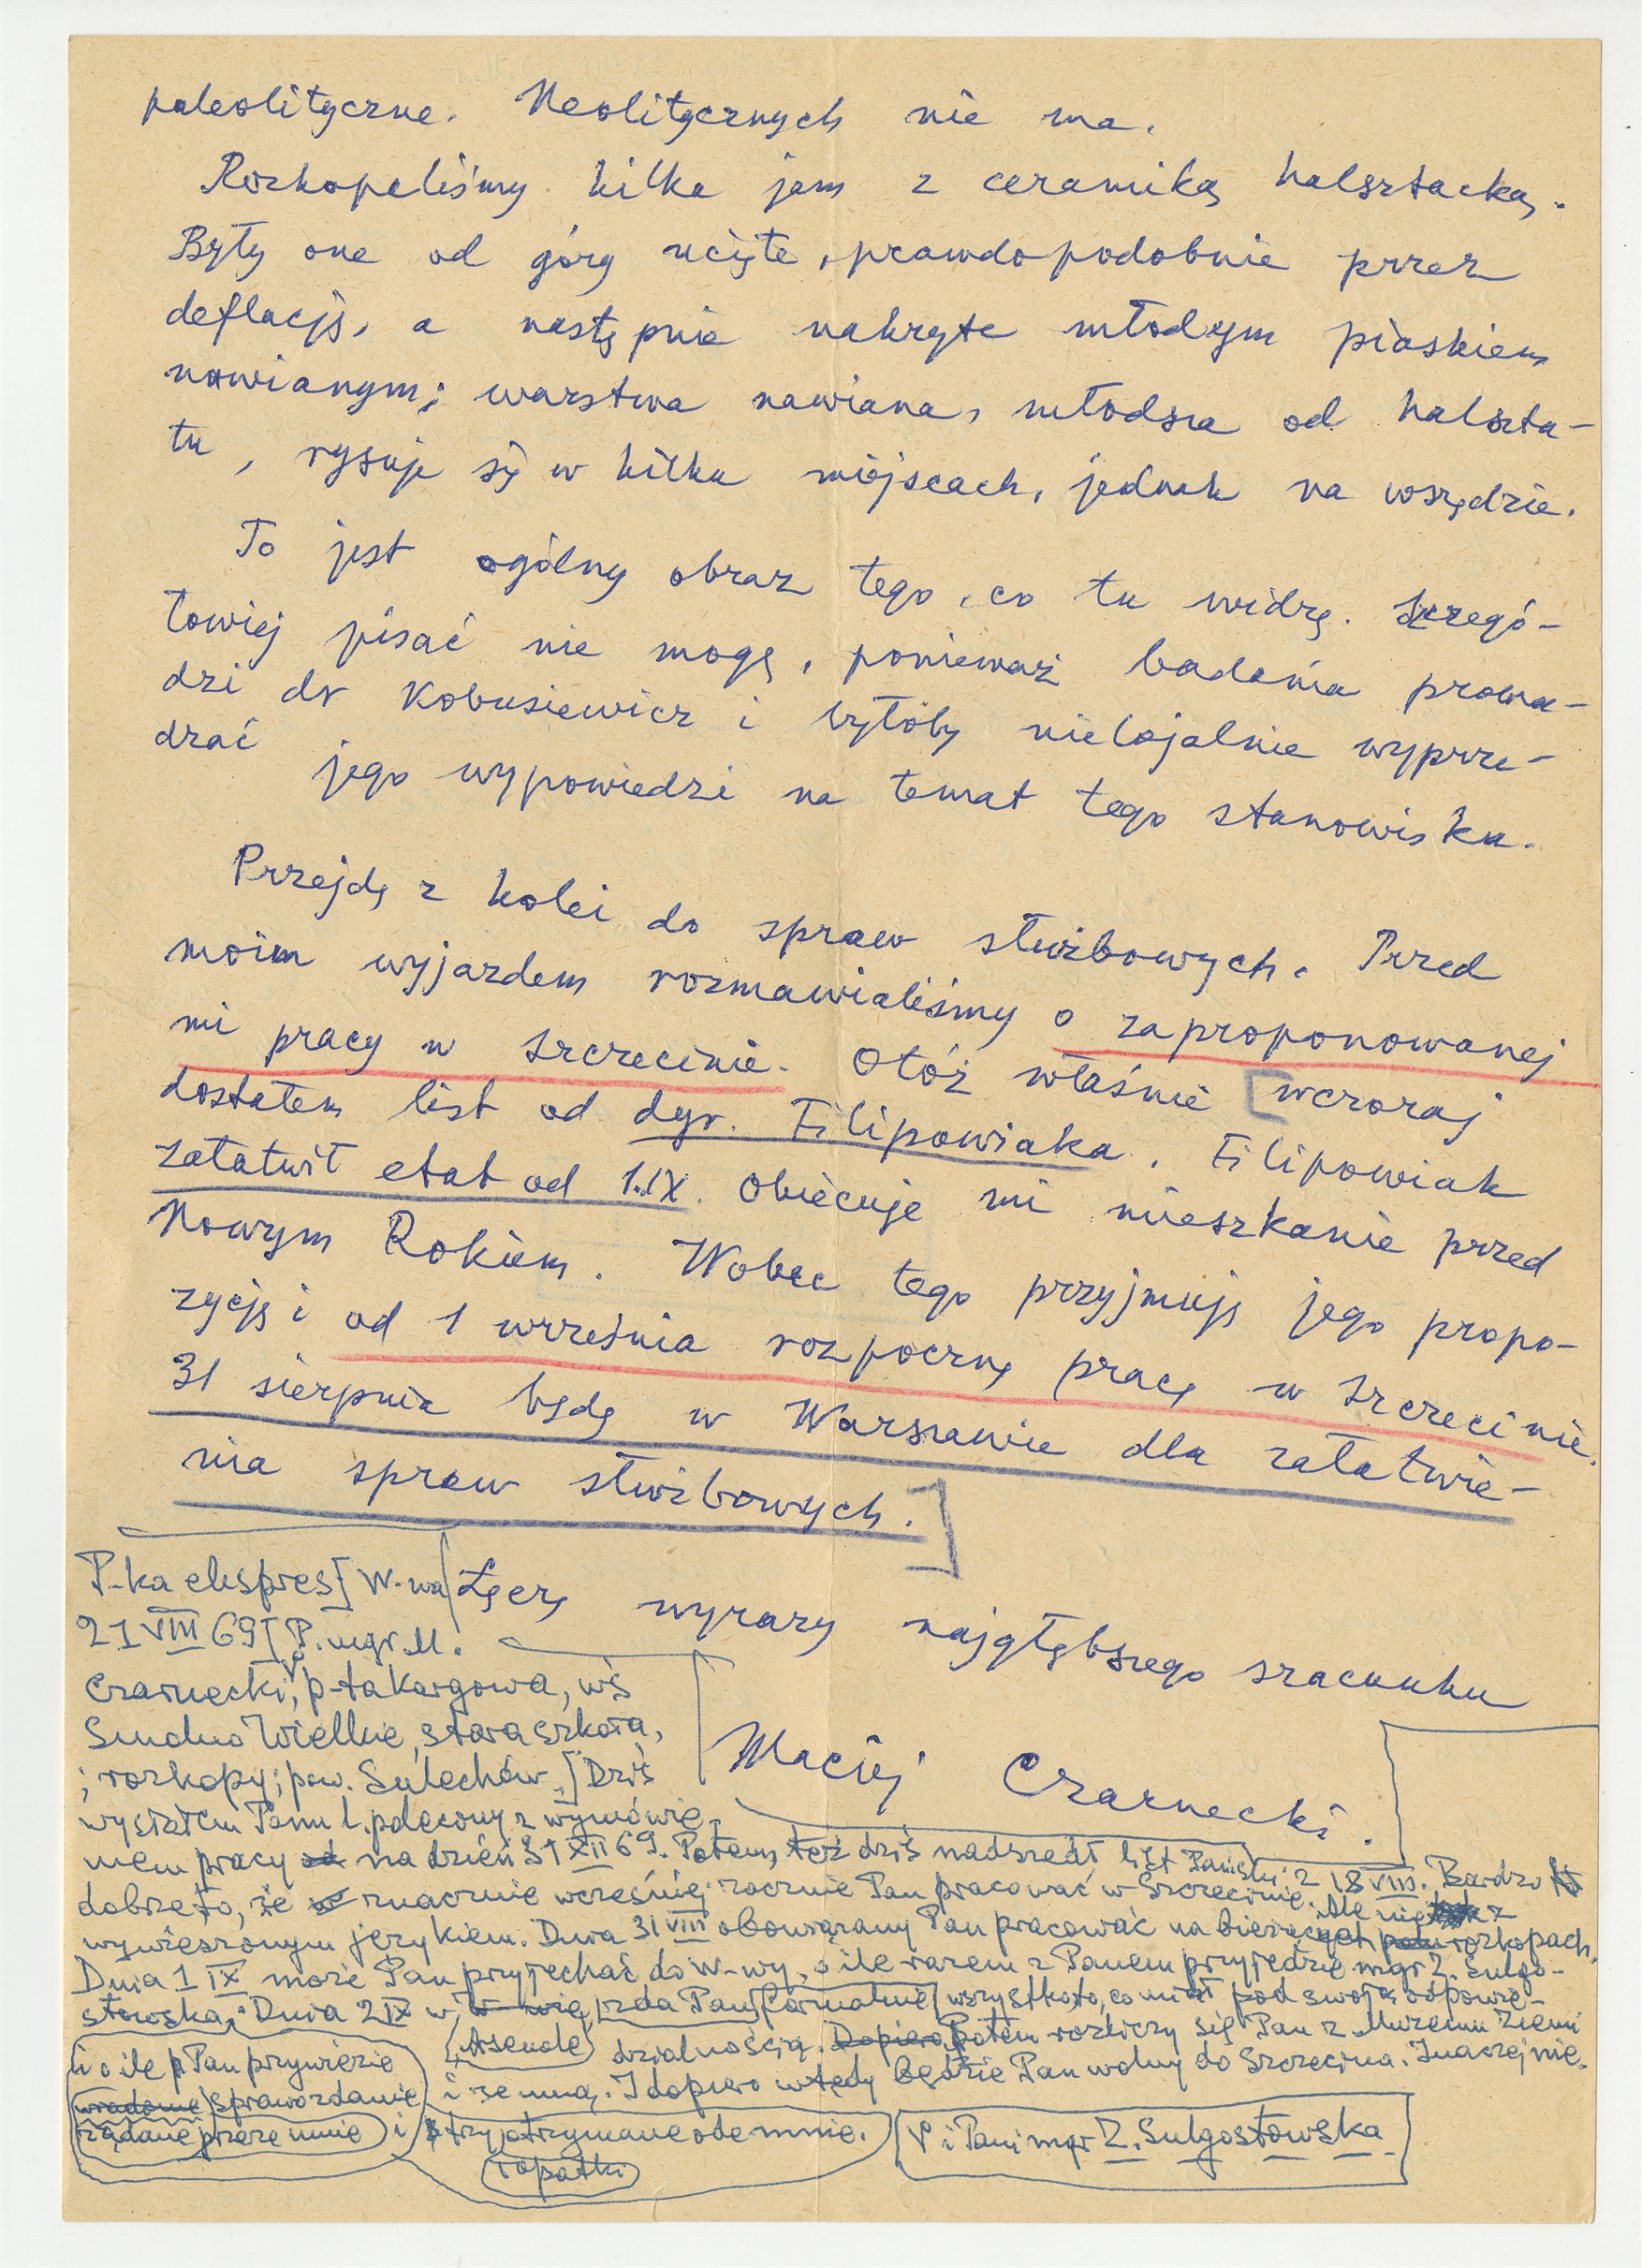 paleolityczne. Neolitycznych nie ma.
Rozkopaliśmy kilka jam z ceramiką halsztacką.
Były one od góry ucięte, prawdopodobnie przez
deflację, a następnie nakryte młodym piaskiem
nawianym; warstwa nawiana, młodsza od halszta-
tu, rysuje się w kilku miejscach, jednak na wszędzie.
To jest ogólny obraz tego, co tu widzę. Szczegó-
łowiej pisać nie mogę, ponieważ badania prowa-
dzi dr Kobusiewicz i byłoby nielojalnie wyprze-
dzać jego wypowiedzi na temat tego stanowiska.
Przejdę z kolei do spraw służbowych. Przed
moim wyjazdem rozmawialiśmy o zaproponowanej
mi pracy w Szczecinie. Otóż właśnie [wczoraj
dostałem list od dyr. Filipowiaka. Filipowiak
załatwił etat od 1.IX. Obiecuje mi mieszkanie przed
Nowym Rokiem. Wobec tego przyjmuję jego propo-
zycję i od 1 września rozpocznę pracę w Szczecinie.
31 sierpnia będę w Warszawie dla załatwie-
nia spraw służbowych.]
Łączę wyrazy najgłębszego szacunku
Maciej Czarnecki.
P-ka ekspres[W-wa
21 VIII 69[P. mgr. M.
Czarnecki, p-ta Kargowa, wś
Smolno Wielkie, stara szkoła,
; rozkopy; pow. Sulechów,[Dziś
wysłałem Panu l. polecony z wymówie-
niem pracy od na dzień 31 XII 69. Potem, też dziś nadszedł list Pański z 18 VIII. Bardzo
dobrze to, że znacznie wcześniej zacznie Pan pracować w Szczecinie. Ale nie z
wywieszonym językiem. Dnia 31 VIII obowiązany Pan pracować na bieżących rozkopach.
Dnia 1 IX może Pan przyjechać do W-wy, o ile razem z Panem przyjedzie mgr Z. Sulgo-
stowska. Dnia 2 IX w zda Pan formalnie wszystko to, co miał pod swoją odpowie-
Asenale dzialnością. Dopiero Potem rozliczy się Pan z Muzeum Ziemi
i ze mną. I dopiero wtedy będzie Pan wolny do Szczecina. Inaczej nie.
i o ile Pan przywiezie
sprawozdanie
żądane przeze mnie i trzy otrzymane ode mnie.
łopatki
V i Pani mgr Z. Sulgostowska